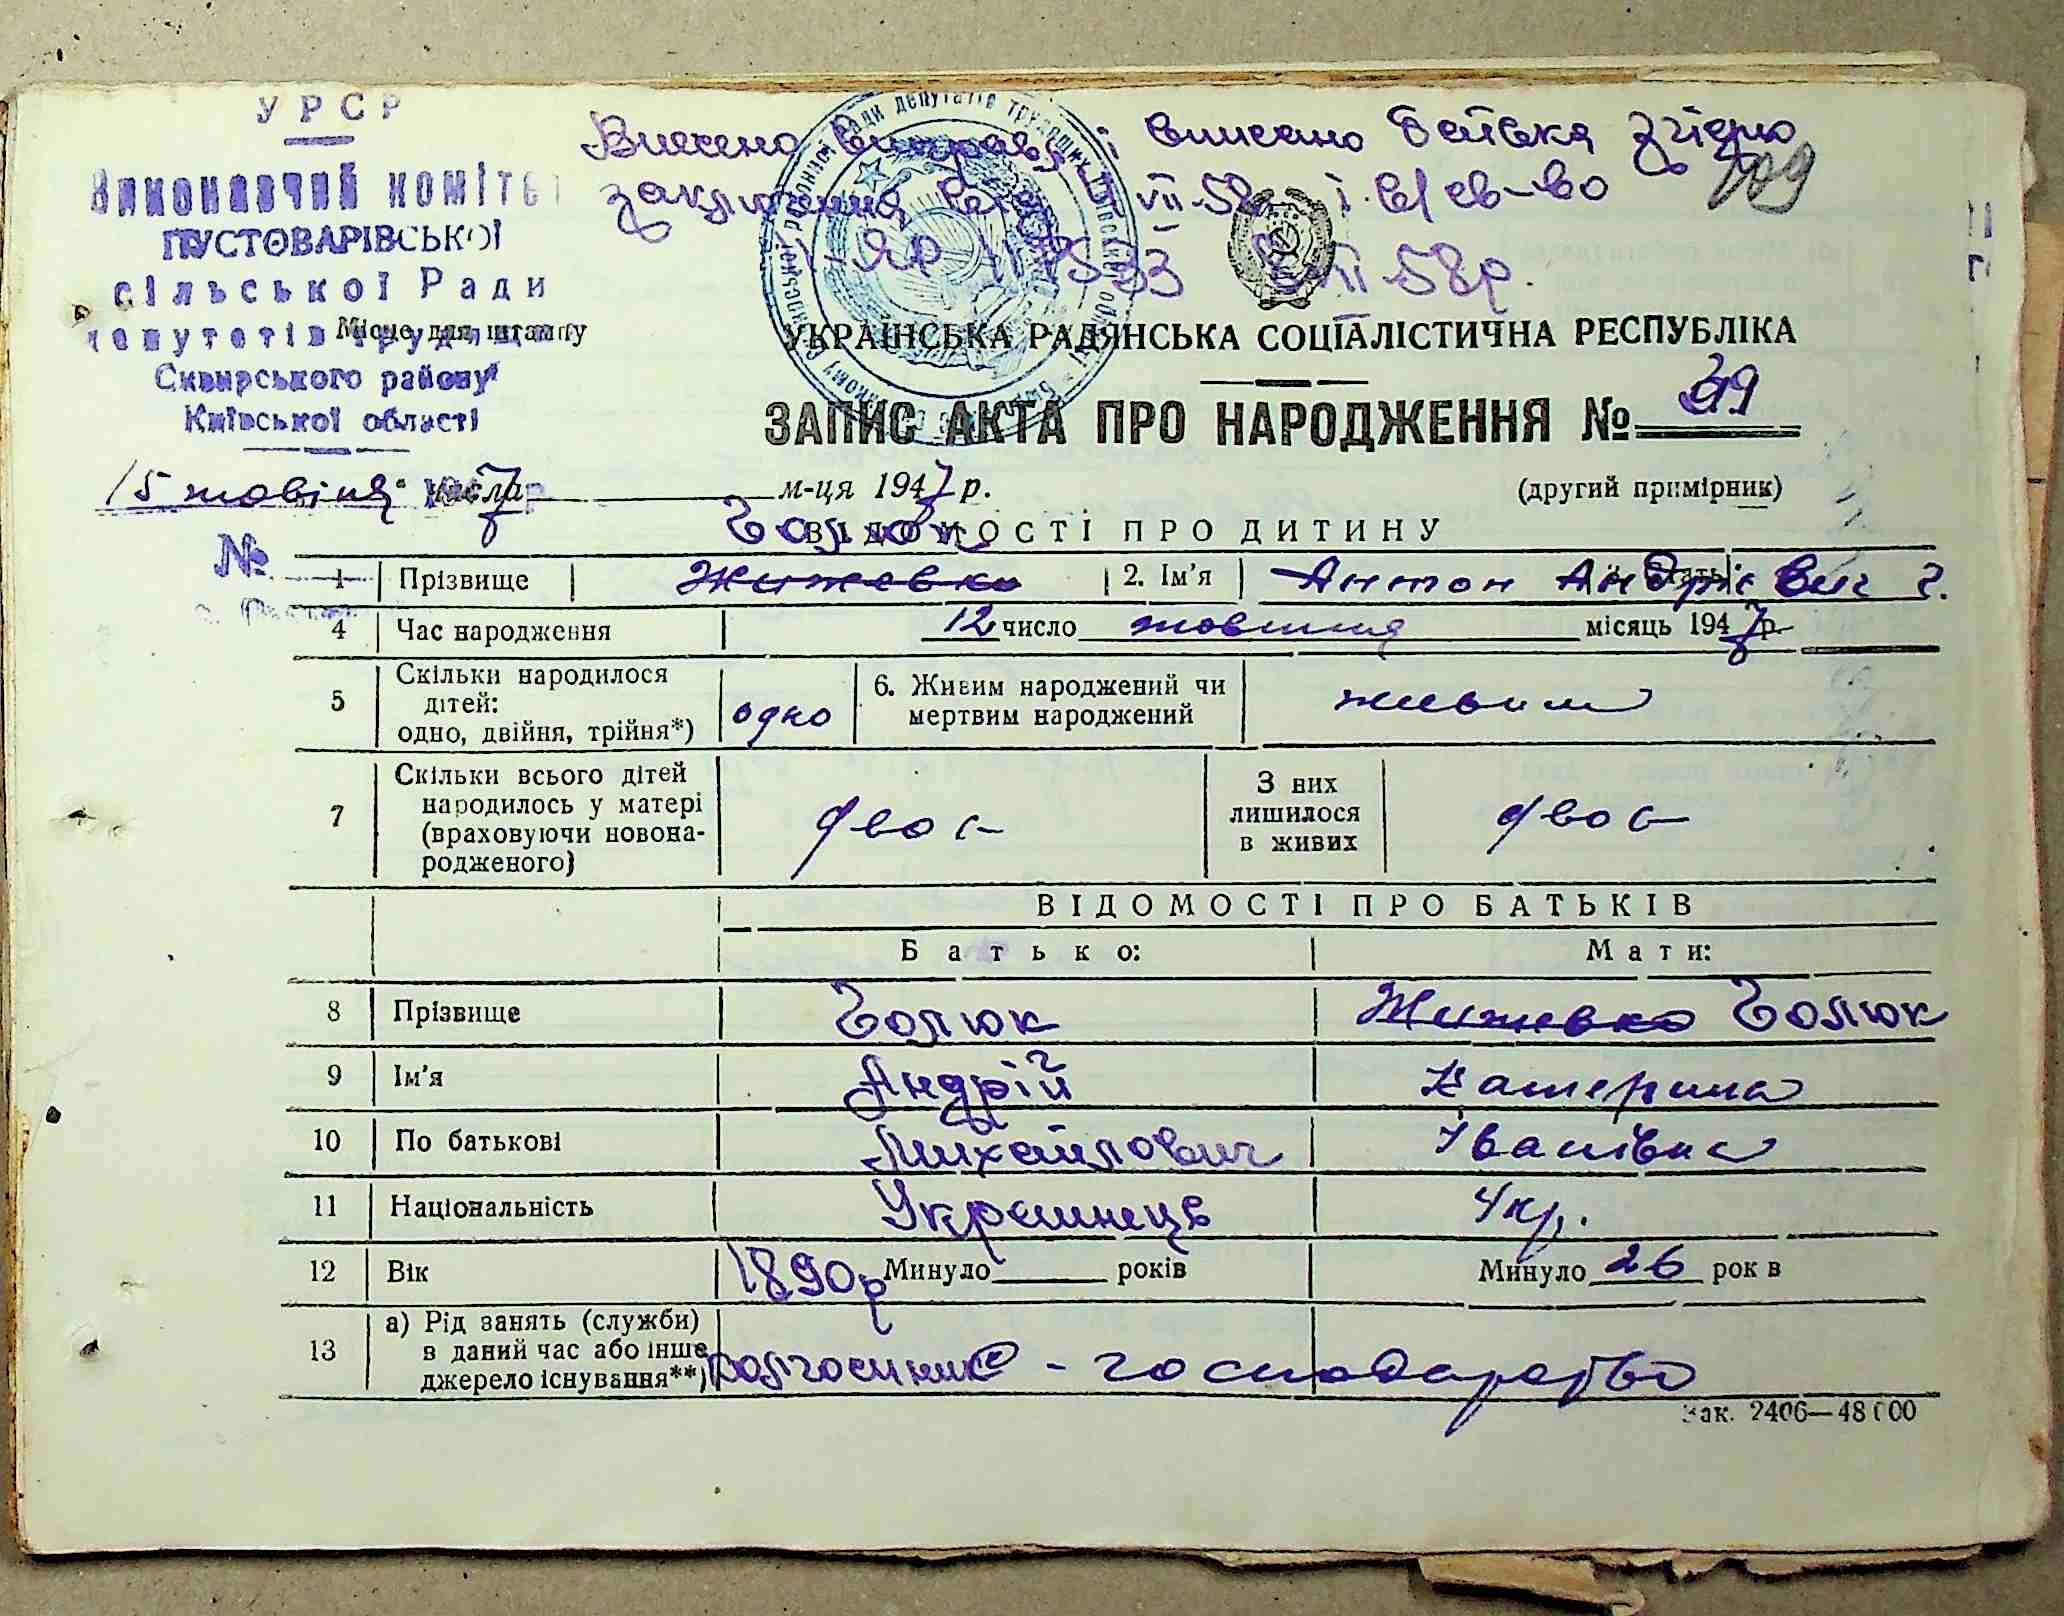 УРСР
Виконавчий комітет
ПУСТОВАРІВСЬКОЇ
сільської Ради
депутатів трудящих
Місце для штампу
Сквирського району
Київської області
15 жовтня 1947 р.
числа м-ця 1947 р.
№
Внесено виправл і вписано батька згідно
закличення від VII-58р і вид св-во
І ЯР № 533 VII-58р.
109
УКРАЇНСЬКА РАДЯНСЬКА СОЦІАЛІСТИЧНА РЕСПУБЛІКА
ЗАПИС АКТА ПРО НАРОДЖЕННЯ № 39
(другий примірник)
ВІДОМОСТІ ПРО ДИТИНУ
Голюк
1 Прізвище Жижевко 2. Ім'я Антон Андрієвич ч.
4 Час народження 12 число жовтня місяць 1947 р.
5 Скільки народилося дітей: одно, двійня, трійня*) одно 6. Живим народжений чи мертвим народжений живим
7 Скільки всього дітей народилось у матері (враховуючи новонародженого) двоє З них лишилося в живих двоє
ВІДОМОСТІ ПРО БАТЬКІВ
Батько: Мати:
8 Прізвище Голюк Жижевко Голюк
9 Ім'я Андрій Катерина
10 По батькові Михайлович Іванівна
11 Національність Українець Укр.
12 Вік 1890р Минуло років Минуло 26 рок в
13 а) Рід занять (служби) в даний час або інше джерело існування**) колгоспник - господарство
Зак. 2406—48000